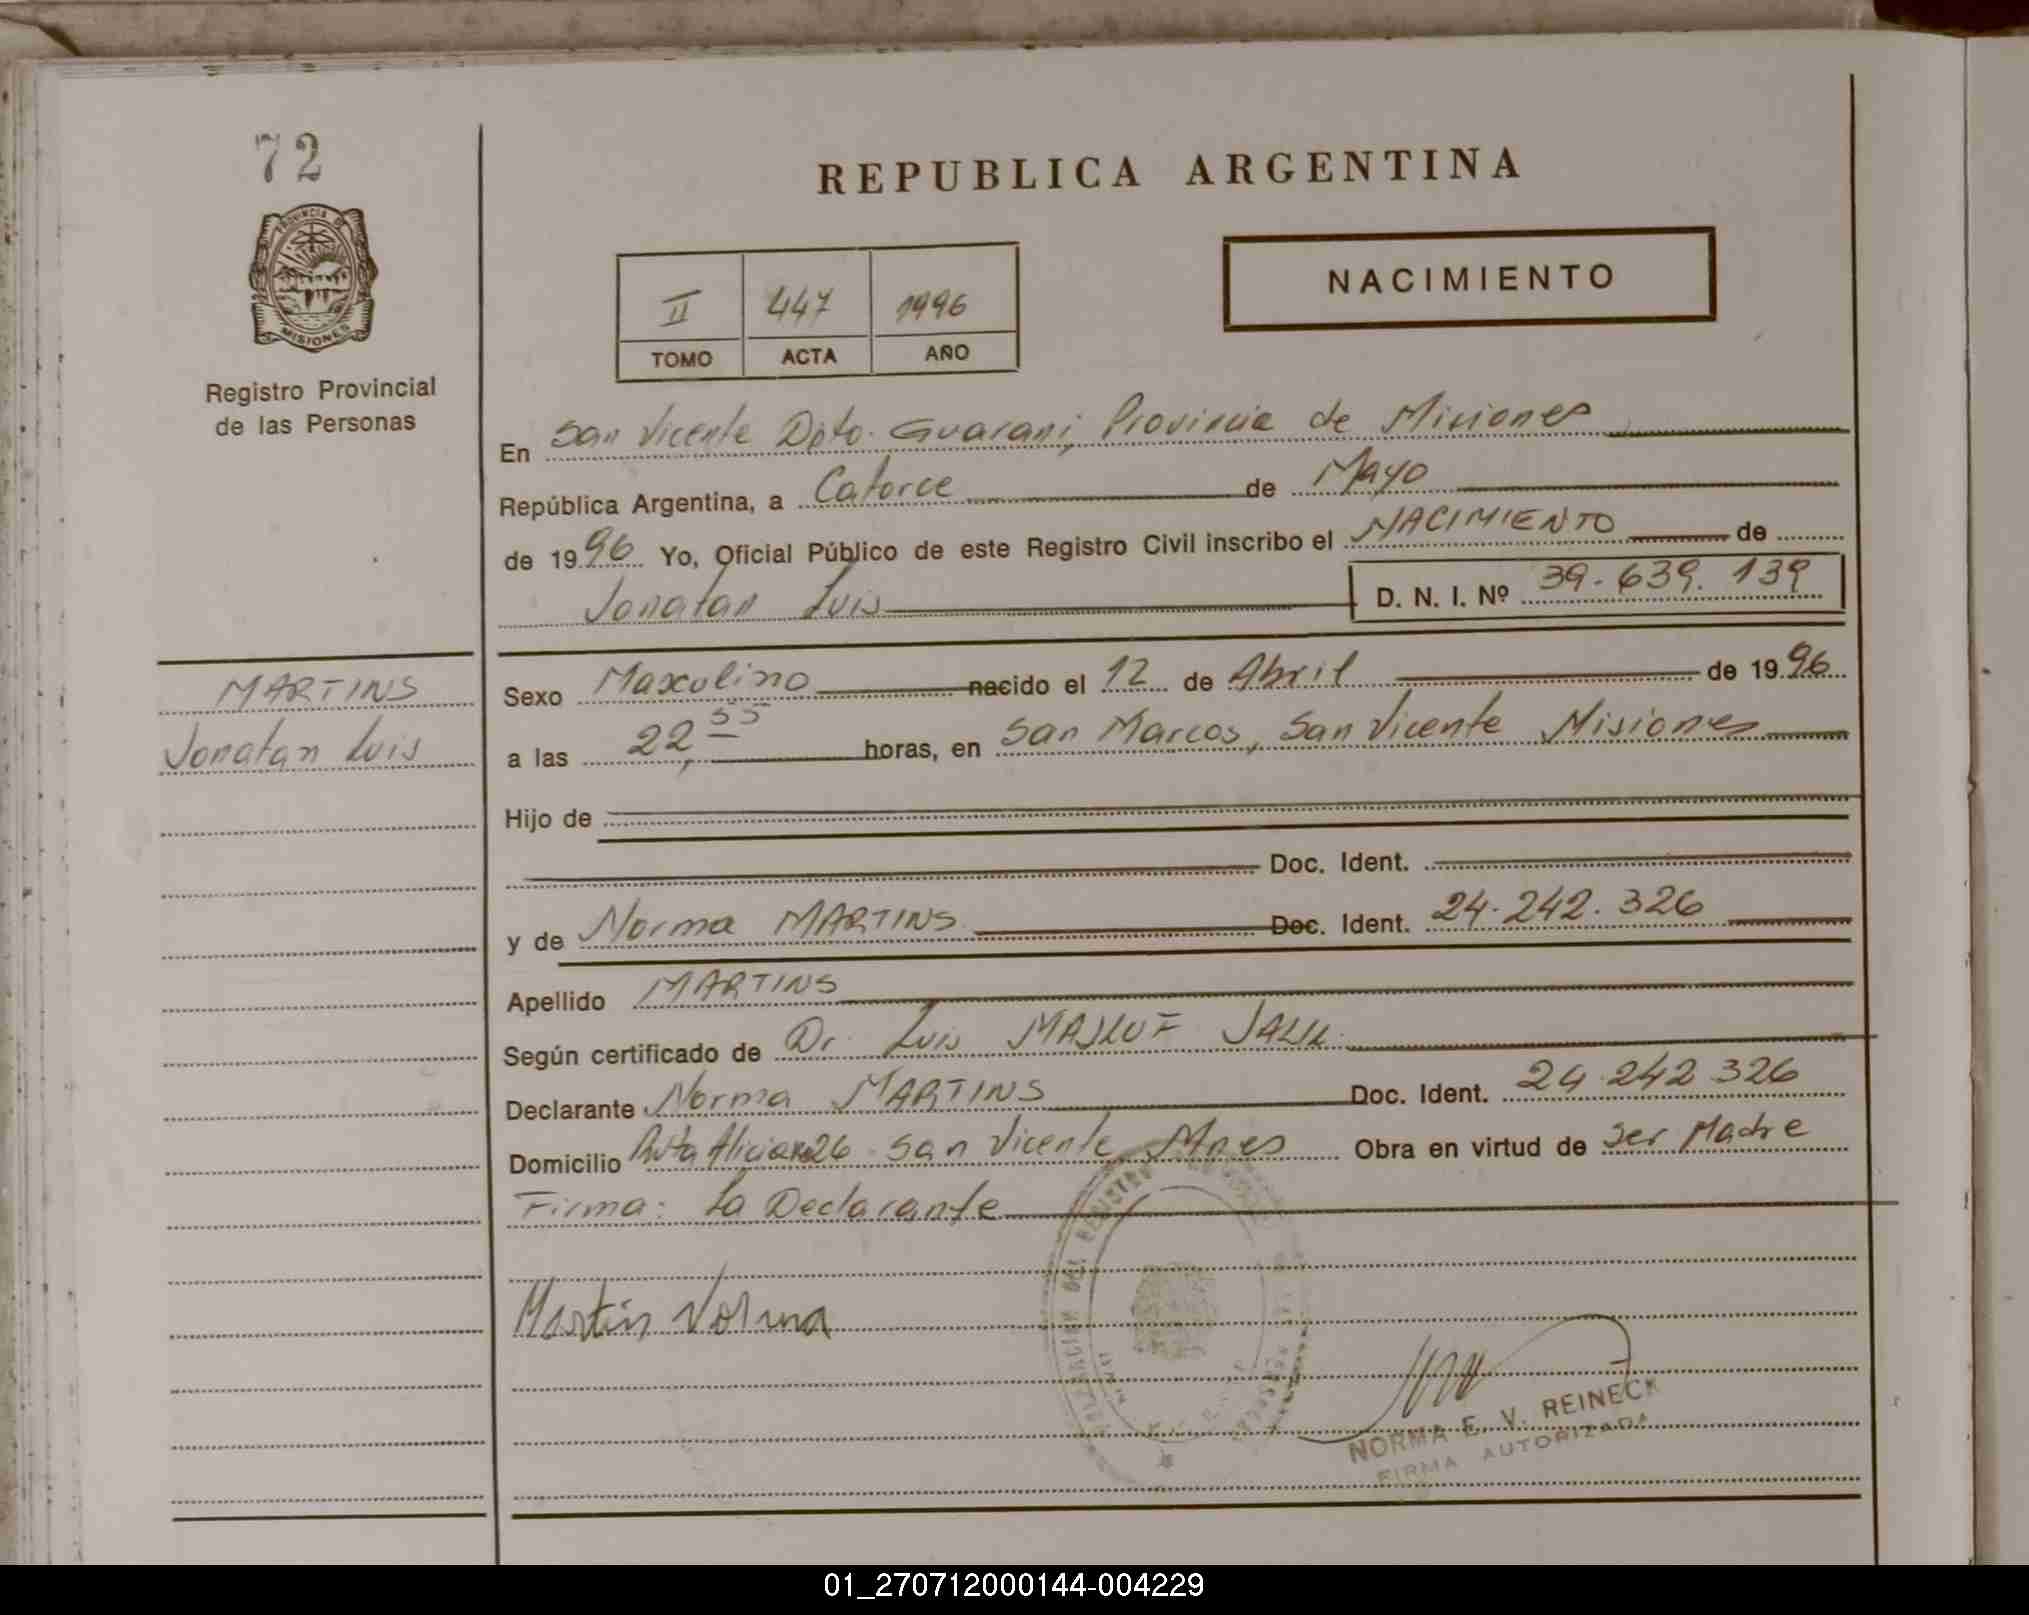 72
PROVINCIA DE
MISIONES
Registro Provincial
de las Personas
MARTINS
Jonatan Luis
REPUBLICA ARGENTINA
NACIMIENTO
II 447 1996
TOMO ACTA AÑO
En San Vicente Dpto. Guaraní, Provincia de Misiones
República Argentina, a Catorce de Mayo
de 1996 Yo, Oficial Público de este Registro Civil inscribo el NACIMIENTO de
Jonatan Luis D. N. I. Nº 39.639.139
Sexo Masculino nacido el 12 de Abril de 1996
a las 22,55 horas, en San Marcos, San Vicente Misiones
Hijo de
Doc. Ident.
y de Norma MARTINS Doc. Ident. 24.242.326
Apellido MARTINS
Según certificado de Dr. Luis
Declarante Norma MARTINS Doc. Ident. 24.242.326
Domicilio San Vicente Mnes Obra en virtud de ser Madre
Firma: La Declarante
Martins Norma
DEL REGISTRO
NORMA E. V. REINECK
FIRMA AUTORIZADA
01_270712000144-004229